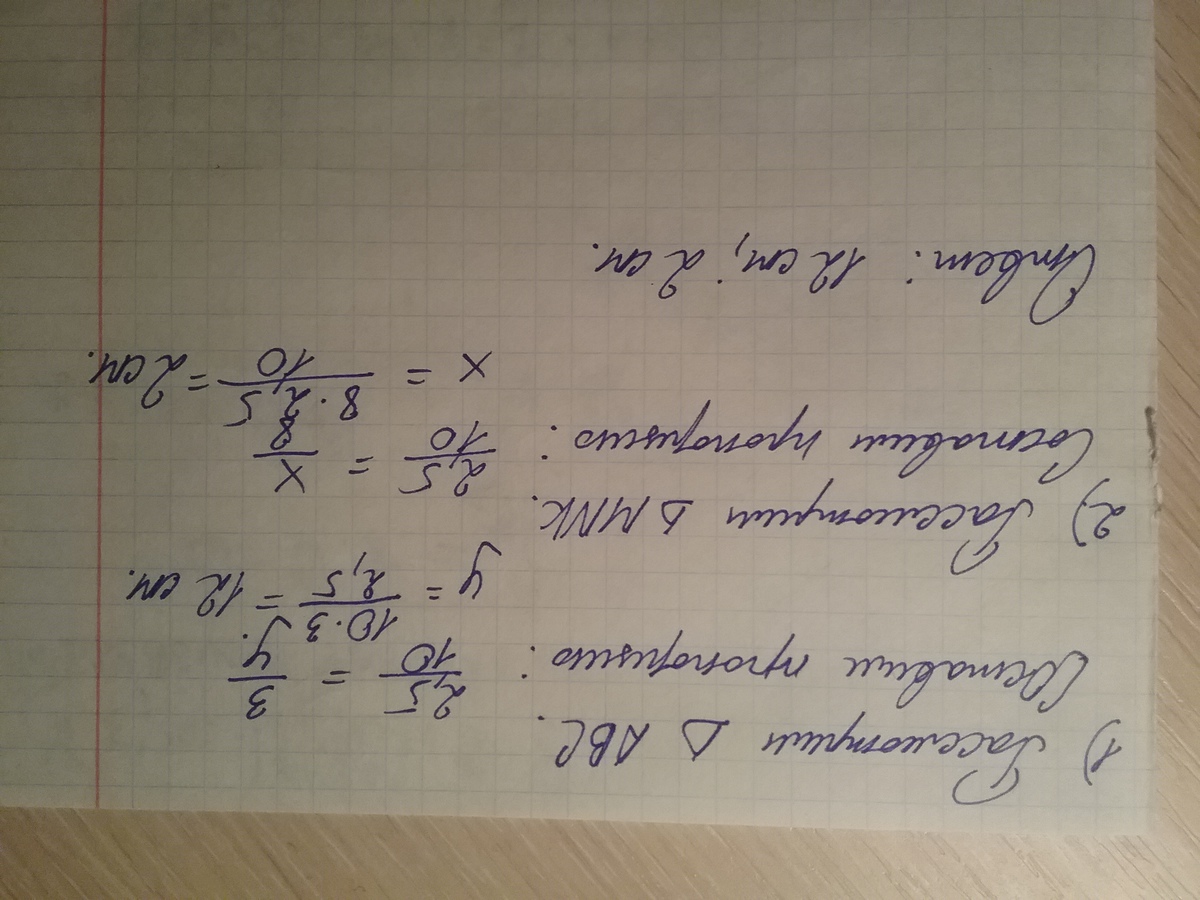 1) Рассмотрим Δ ABC.
Составим пропорцию: 2,5/10 = 3/y.
y = 10·3/2,5 = 12 см.
2) Рассмотрим Δ MNK.
Составим пропорцию: 2,5/10 = x/8
x = 8·2,5/10 = 2 см.
Ответ: 12 см; 2 см.